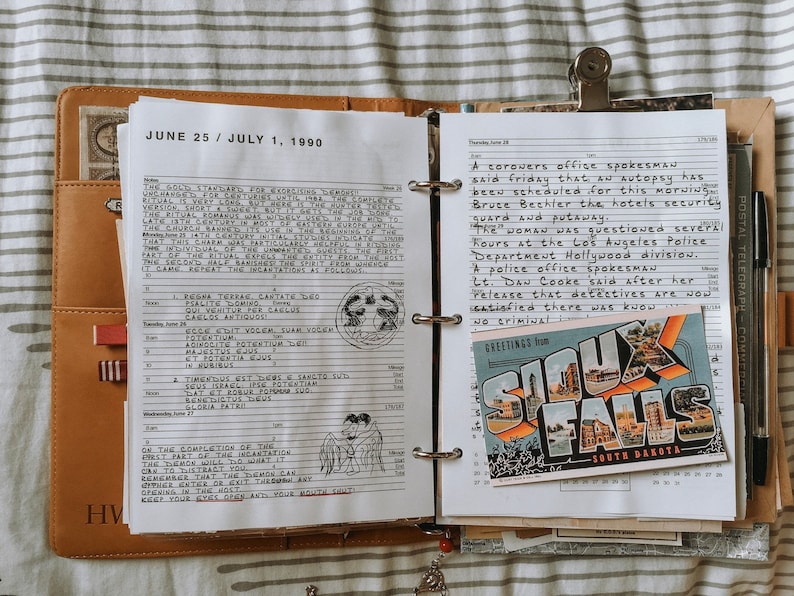 JUNE 25 / JULY 1, 1990
Notes
Week 26
THE GOLD STANDARD FOR EXORCISING DEMONS!!
UNCHANGED FOR CENTURIES UNTIL 1982. THE COMPLETE
RITUAL IS VERY LONG, SO HERE IS THE HUNTER ABRIDGED
VERSION. SHORT & SWEET, BUT IT GETS THE JOB DONE.
THE RITUAL ROMANUS WAS WIDELY USED IN THE MID TO
LATE 13TH CENTURY IN MOST OF EASTERN EUROPE UNTIL
THE CHURCH BANNED ITS USE IN THE BEGINNING OF THE
Monday, June 25
176/189
14TH CENTURY. INITIAL STUDIES INDICATE
THAT THIS CHARM WAS PARTICULARLY HELPFUL IN RIDDING
THE INDIVIDUAL OF THE UNWANTED GUESTS. THE FIRST
PART OF THE RITUAL EXPELS THE ENTITY FROM THE HOST.
THE SECOND HALF BANISHES THE SPIRIT FROM WHENCE
IT CAME. REPEAT THE INCANTATIONS AS FOLLOWS:
10
Mileage
Noon
Evening
1. REGNA TERRAE, CANTATE DEO
PSALITE DOMINO,
QUI VEHITUR PER CAELUS
CAELOS ANTIQUOS!
Tuesday, June 26
ECCE EDIT VOCEM, SUAM VOCEM
8am
POTENTIAM.
AGINOCITE POTENTIAM DEI!
9
MAJESTUS EJUS
10
ET POTENTIA EJUS
11
IN NUBIBUS
Noon
2. TIMENDUST EST DEUS E SANCTO SUO
SEUS ISRAEL. IPSE POTENTIAM
DAT ET ROBUR POPULO SUO.
BENEDICTUS DEUS
GLORIA PATRI!
Mileage
Start
End
Total
Wednesday, June 27
178/187
9
ON THE COMPLETION OF THE
FIRST PART OF THE INCANTATION
THE DEMON WILL DO WHAT IT
CAN TO DISTRACT YOU.
REMEMBER THAT THE DEMON CAN
EITHER ENTER OR EXIT THROUGH ANY
OPENING IN THE HOST.
KEEP YOUR EYES OPEN AND YOUR MOUTH SHUT!
Mileage
Start
End
Total
HW
Thursday, June 28
179/186
8am
1pm
A coroners office spokesman
said friday that an autopsy has
been scheduled for this morning.
Bruce Bechler the hotels security
guard and putaway.
Mileage
Start
End
180/185
The woman was questioned several
hours at the Los Angeles Police
Department Hollywood division.
A police office spokesman
Lt. Dan Cooke said after her
release that detectives are now
satisfied there was know
no criminal
GREETINGS from
SIOUX
FALLS
SOUTH DAKOTA
POSTAL TELEGRAPH - COMMERCIAL